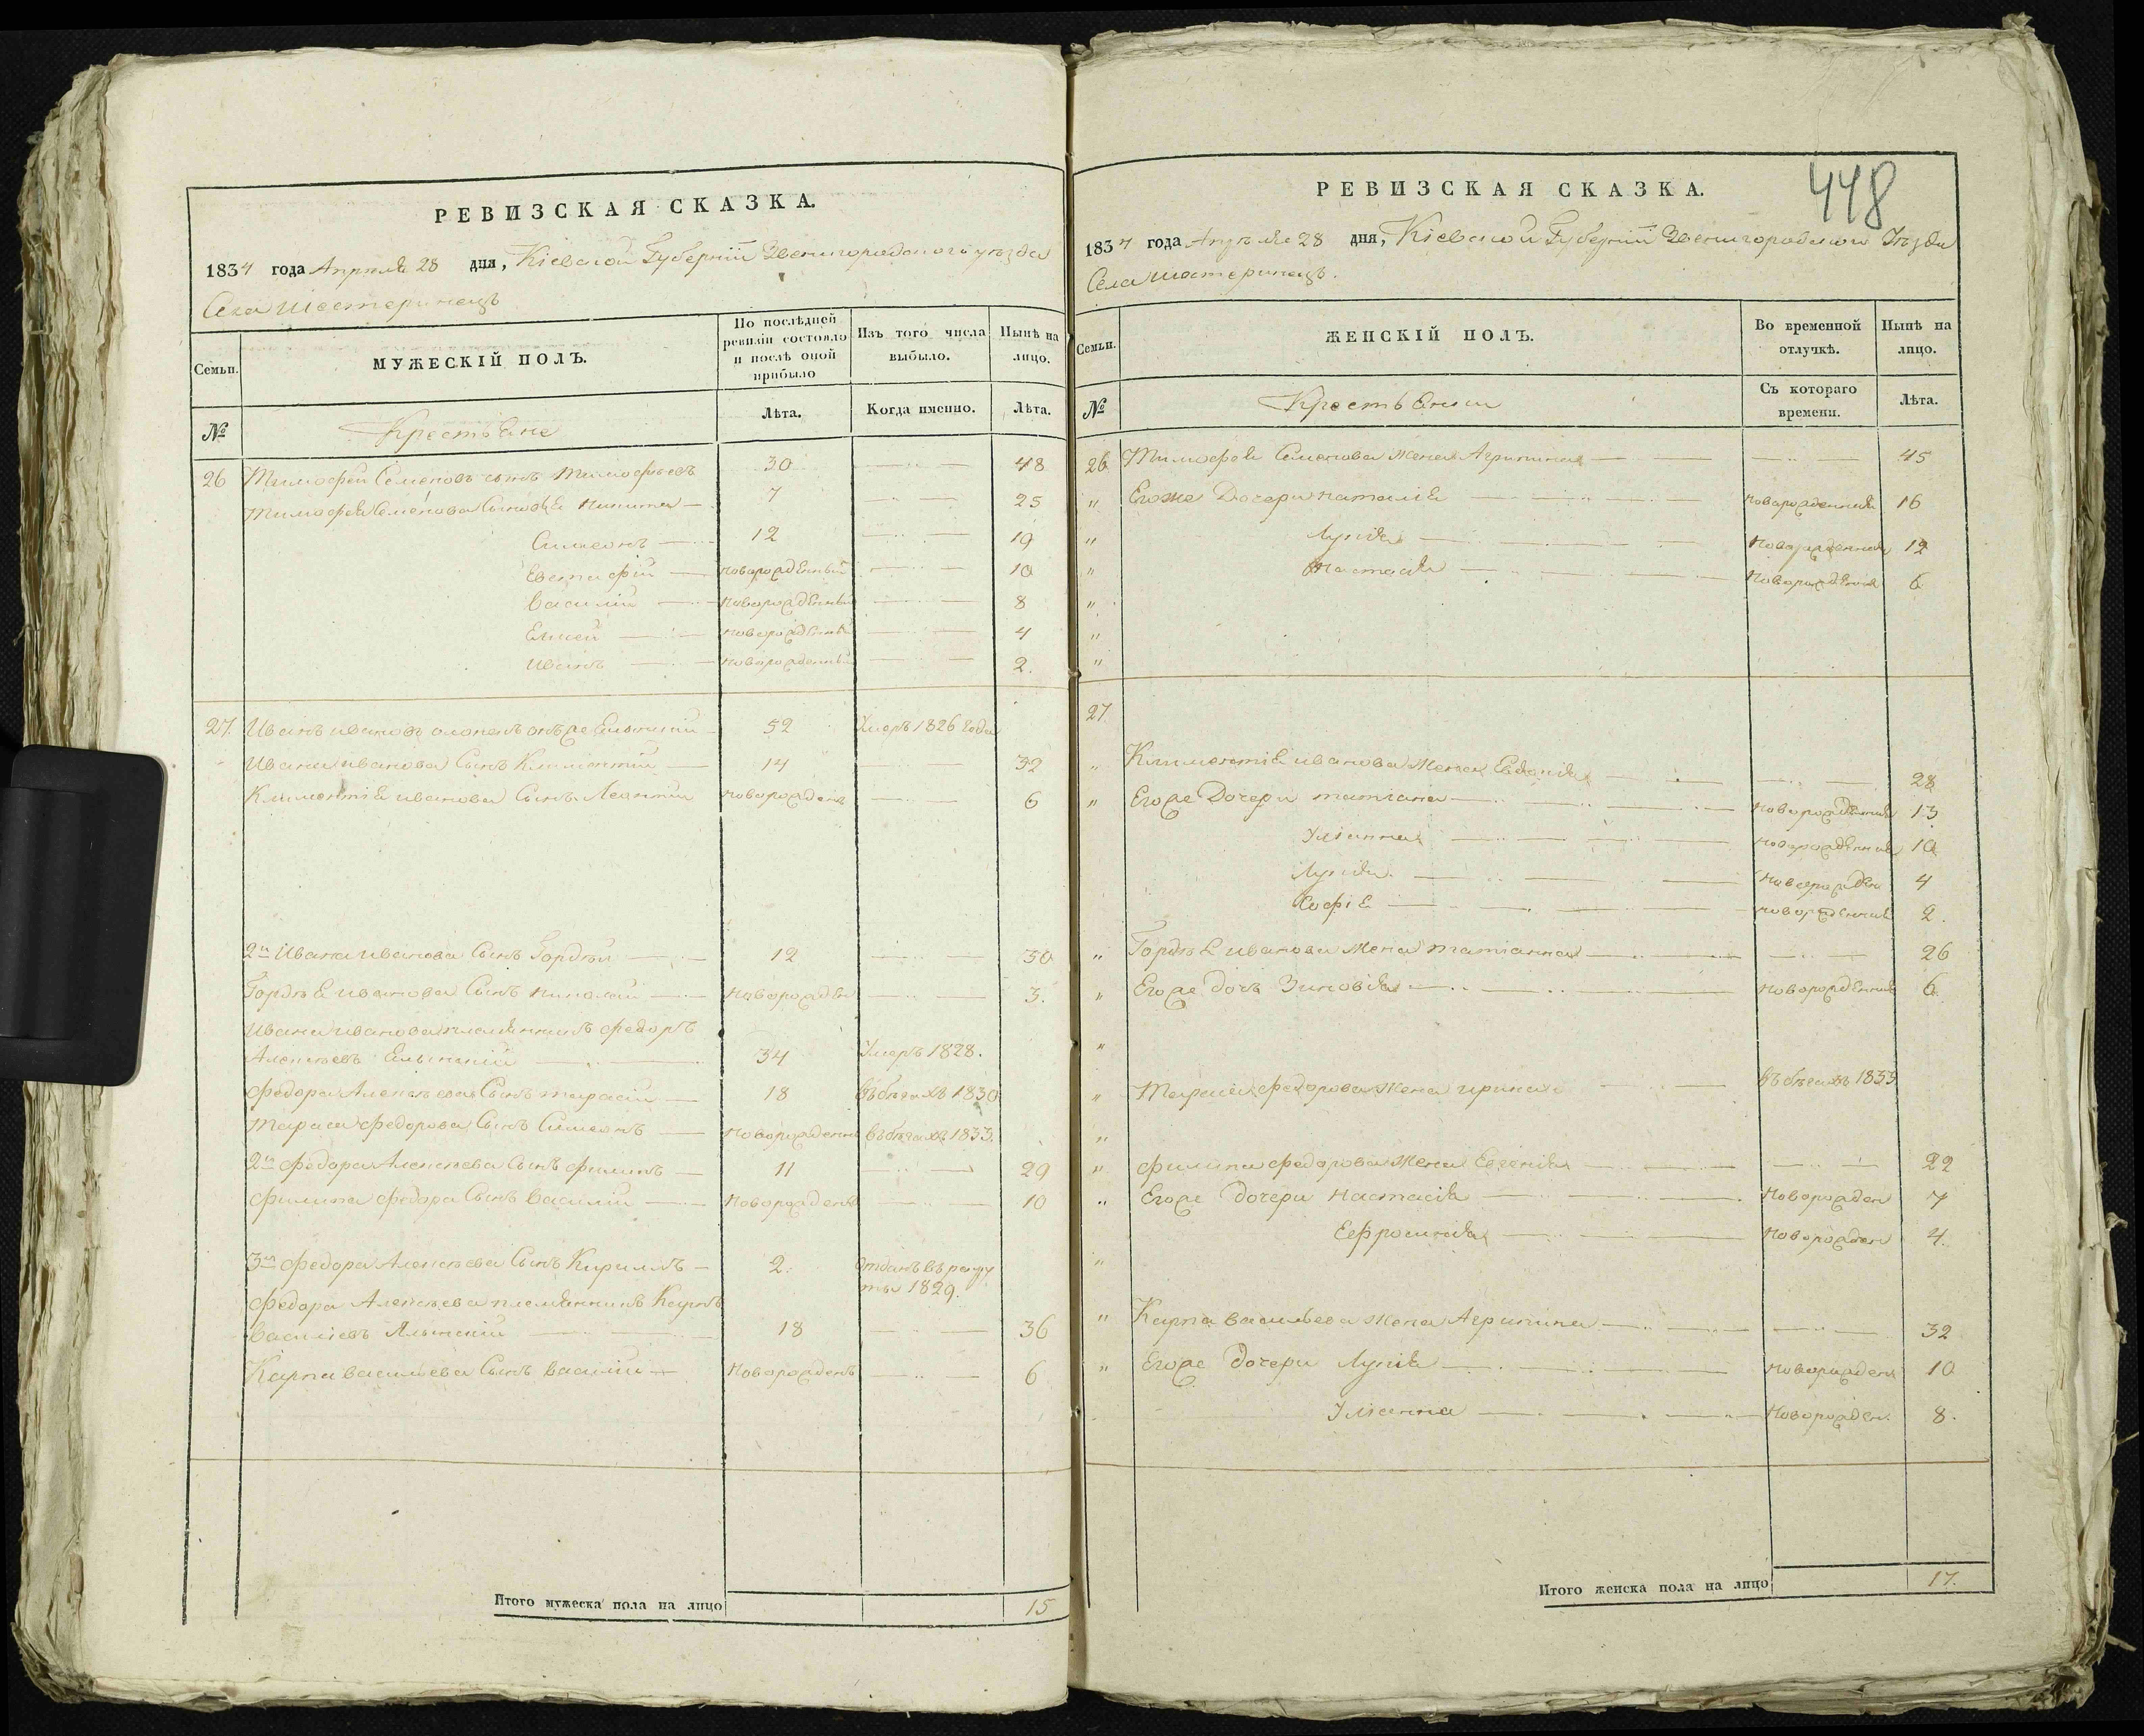 РЕВИЗСКАЯ СКАЗКА.
1834 года Апреля 28 дня, Кіевской Губерніи Звенигородского уезда
Села Шестеринецъ
Семьи.
МУЖЕСКІЙ ПОЛЪ.
По послѣдней ревизіи состояло и послѣ оной прибыло
Изъ того числа выбыло.
Нынѣ на лицо.
№
Крестьяне
Лѣта.
Когда именно.
Лѣта.
26 Тимофей Семеновъ сынъ Тимофѣевъ 30 48
Тимофея Семенова Сыновья Никита 7 25
Симеонъ 12 19
Евстафій новорожденный 10
Василій новорожденный 8
Елисей новорожденный 4
Иванъ новорожденный 2.
27. Иванъ Ивановъ 52 Умеръ 1826 года
Ивана Иванова Сынъ Климентій 14 32
Климентія Иванова Сынъ Леонтій новорожденъ 6
2й Ивана Иванова Сынъ Гордѣй 12 30
Гордѣя Иванова Сынъ Николай новорожден 3.
Ивана Иванова племянникъ Федоръ
Алексѣевъ 34 Умеръ 1828.
Федора Алексѣева Сынъ Тарасій 18 Въ бѣгахъ 1830
Тараса Федорова Сынъ Симеонъ новорожденный въ бѣгахъ 1833.
2й Федора Алексѣева Сынъ Филипъ 11 29
Филипа Федора Сынъ Василій новорожденъ 10
3й Федора Алексѣева Сынъ Кирилъ 2. Отданъ въ рекру
ты 1829.
Федора Алексѣева племянникъ Карпъ
Василіевъ 18 36
Карпа Васильева Сынъ Василій новорожденъ 6
Итого мужеска пола на лицо 15
РЕВИЗСКАЯ СКАЗКА.
448
1834 года Апреля 28 дня, Кіевской Губерніи Звенигородского Уезда
Села Шестеринецъ.
Семьи.
ЖЕНСКІЙ ПОЛЪ.
Во временной отлучкѣ.
Нынѣ на лицо.
№
Крестьянки
Съ котораго времени.
Лѣта.
26 Тимофея Семенова жена Агрипина 45
" Егоже Дочери Наталія новорожденная 16
" Лукія новорожденная 12
" Настасія новорожденна 6
"
"
"
27.
" Климентія Иванова Жена Евдокія 28
" Егоже Дочери Татіана новорожденная 13
Уліанна новорожденная 10
Лукія новорожден 4
Софія новорожденная 2.
" Гордѣя Иванова Жена Татіанна 26
" Егоже дочь Зиновія новорожденная 6
"
" Тарасія Федорова Жена Ирина въ бѣгахъ 1833
"
" Филипа Федорова Жена Евгенія 22
" Егоже дочери Настасія новорожден 7
Ефросинія новорожден 4.
"
" Карпа Васильева Жена Агрипина 32
" Егоже дочери Лукія новорожден 10
Уліанна новорожден. 8.
Итого женска пола на лицо 17.